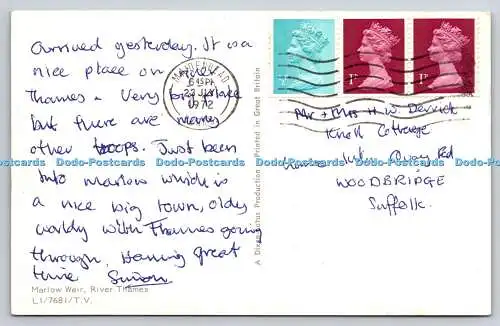 Arrived yesterday. It is a
nice place on River
Thames - Very
but there are many
other troops. Just been
into Marlow which is
a nice big town, oldy
worldy with Thames going
through. Having great
time Simon
Marlow Weir, River Thames
L1/7681/T.V.
A Dixon-Lotus Production
Printed in Great Britain
MAIDENHEAD
6 15PM
22 JLY
1972
1P
1P
Mr + Mrs H.W. Derrick
Knoll Cottage
Quay Rd
WOODBRIDGE
Suffolk.
Dodo-Postcards Dodo-Postcards Dodo-Postcards Dodo-Postcards Dodo-Postcards